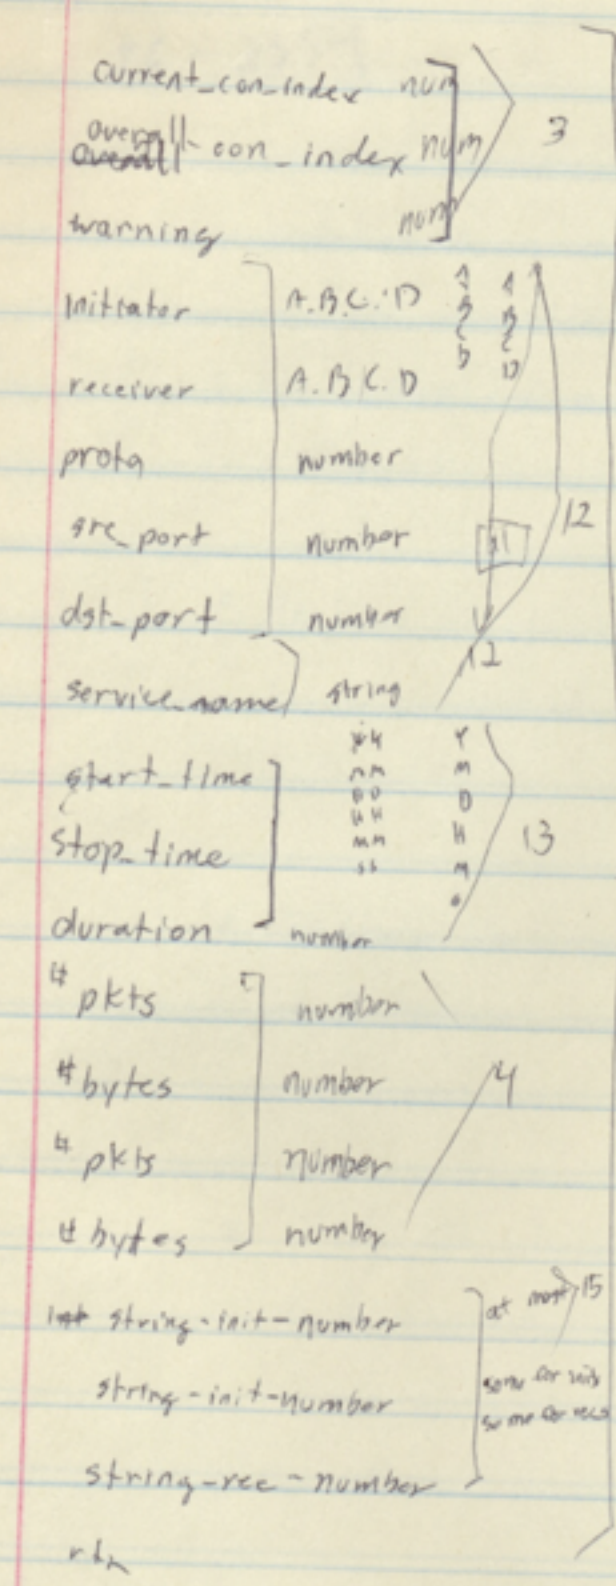 current_con_index num
overall_con_index num 3
warning num
initiator A.B.C.D A A
B B
C C
D D
receiver A.B.C.D
proto number
src_port number 12
dst_port number
12
service_name string
Y
start_time M
D
stop_time H 13
M
duration number
# pkts number
# bytes number 4
# pkts number
# bytes number
string-init-number at most 15
string-init-number some for init
some for rec
string-rec-number